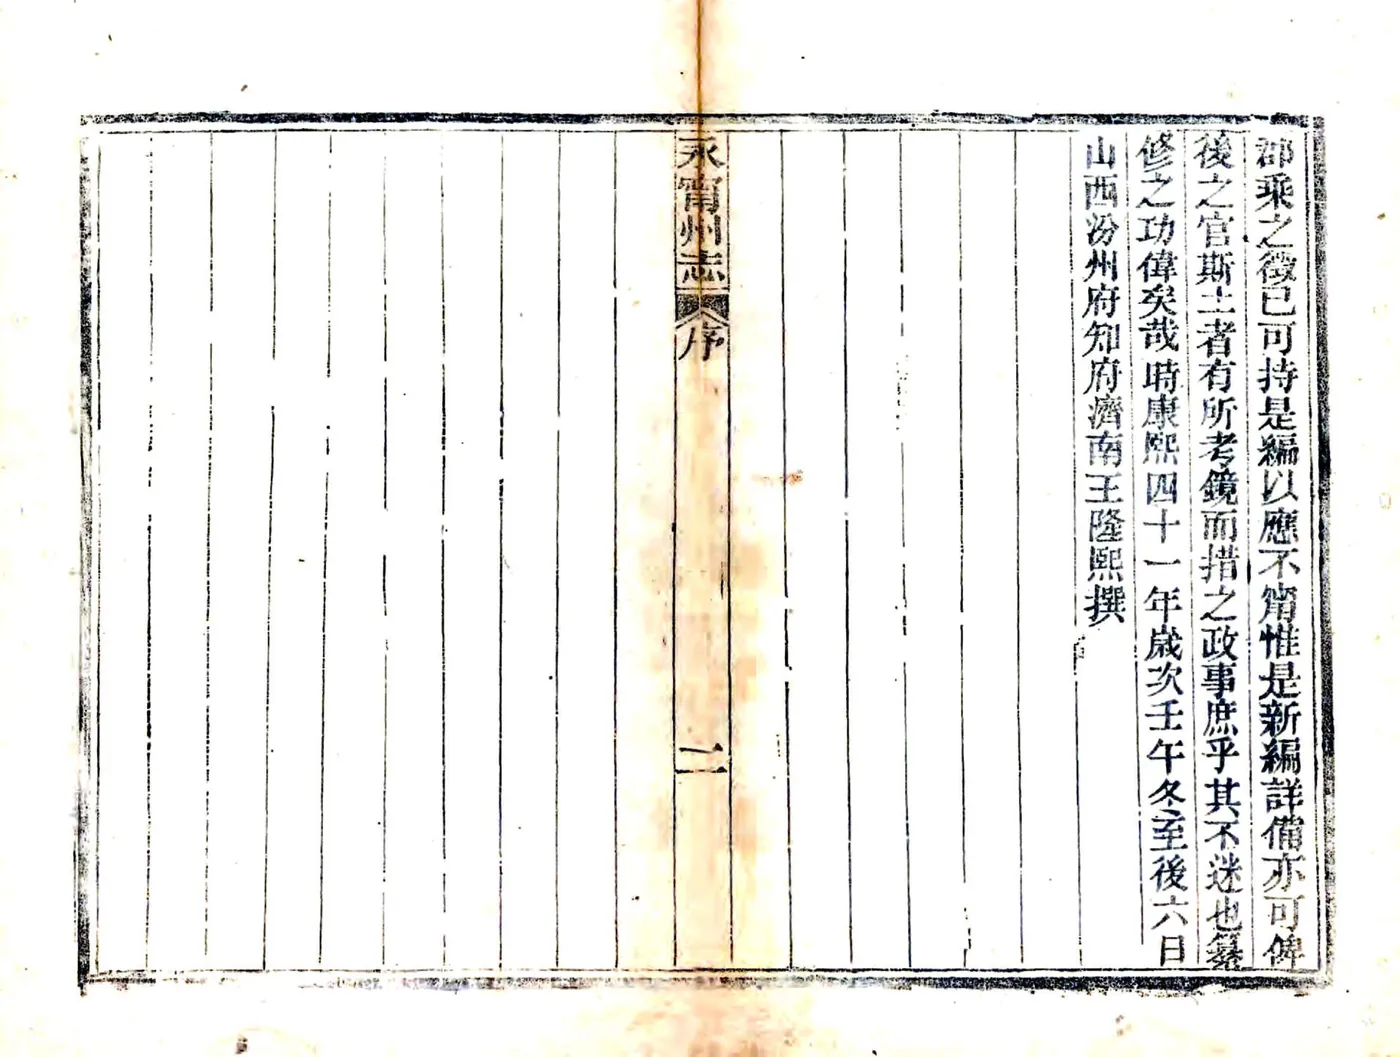 郡乘之徵已可持是編以應不甯惟是新編詳備亦可俾
後之官斯土者有所考鏡而措之政事庶乎其不迷也纂
修之功偉矣哉時康熙四十一年歲次壬午冬至後六日
山西汾州府知府濟南王隆熙撰
永甯州志
序
二